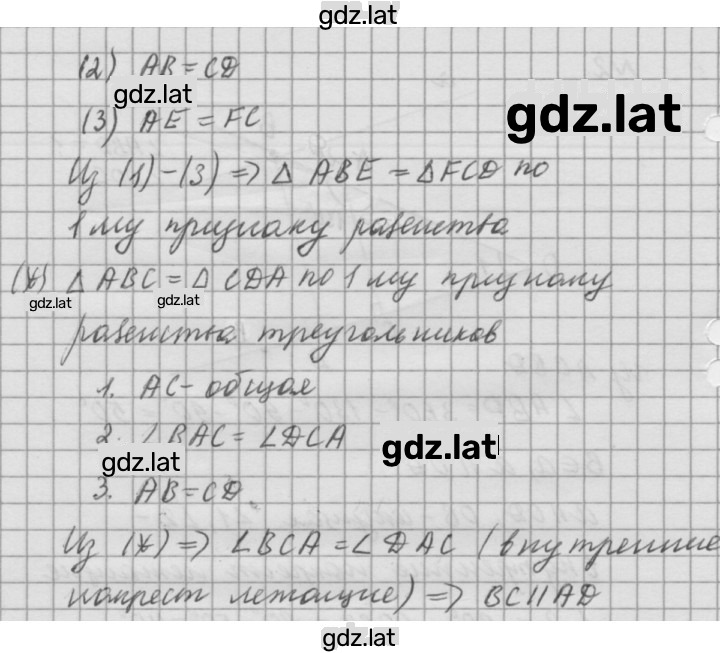 gdz.lat
(2) AB = CD
gdz.lat
gdz.lat
(3) AE = FC
Из (1)-(3) => Δ ABE = ΔFCD по
1 му признаку равенства
(*) Δ ABC = Δ CDA по 1 му признаку
gdz.lat gdz.lat
равенства треугольников
1. AC - общая
2. ∠BAC = ∠DCA
gdz.lat gdz.lat
3. AB = CD
Из (*) => ∠BCA = ∠DAC (внутренние
накрест лежащие) => BC || AD
gdz.lat